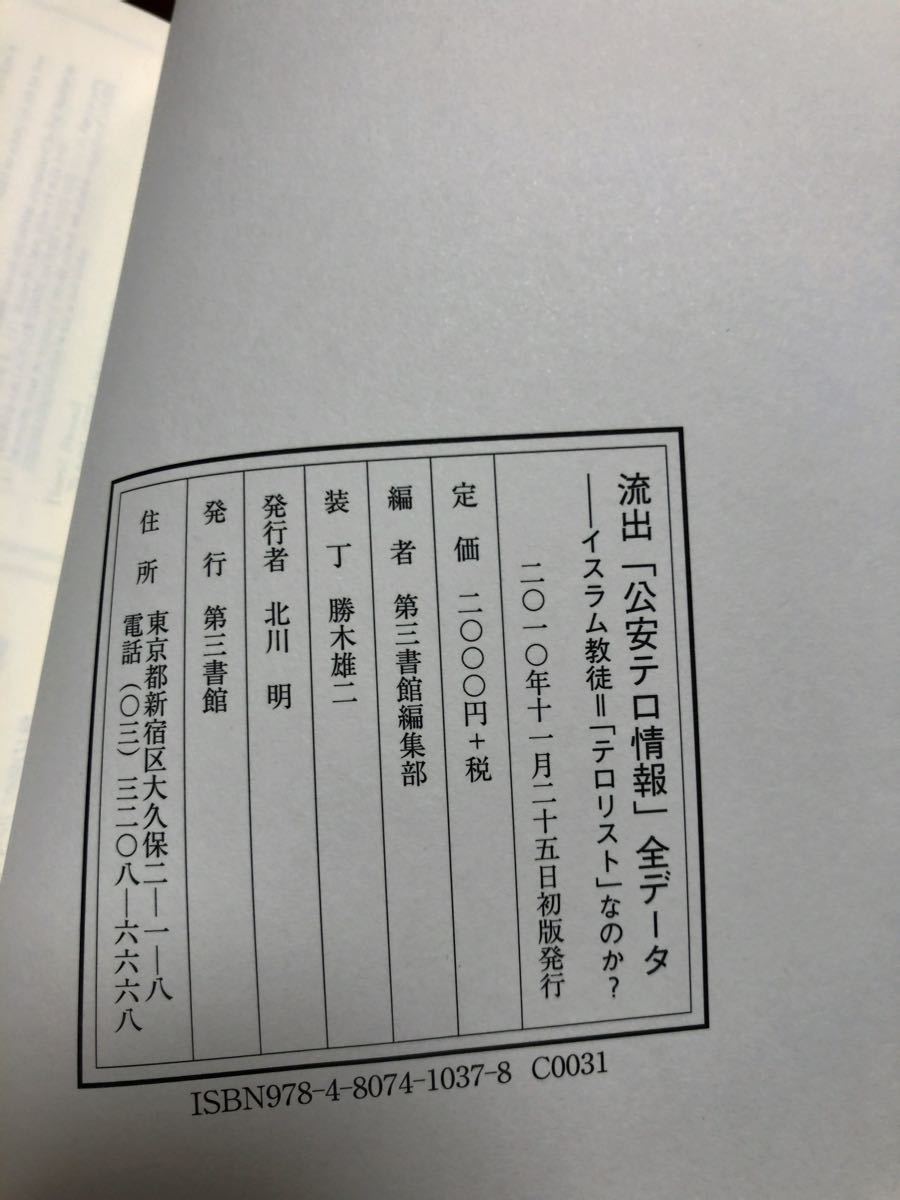 流出「公安テロ情報」全データ
――イスラム教徒＝「テロリスト」なのか？
二〇一〇年十一月二十五日初版発行
定 価 二〇〇〇円＋税
編 者 第三書館編集部
装 丁 勝木雄二
発行者 北川 明
発 行 第三書館
住 所 東京都新宿区大久保二―一―八
電話（〇三）三二〇八―六六六八
ISBN978-4-8074-1037-8 C0031